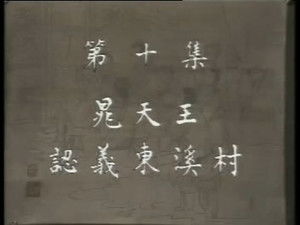 第十集
晁天王
認義東溪村